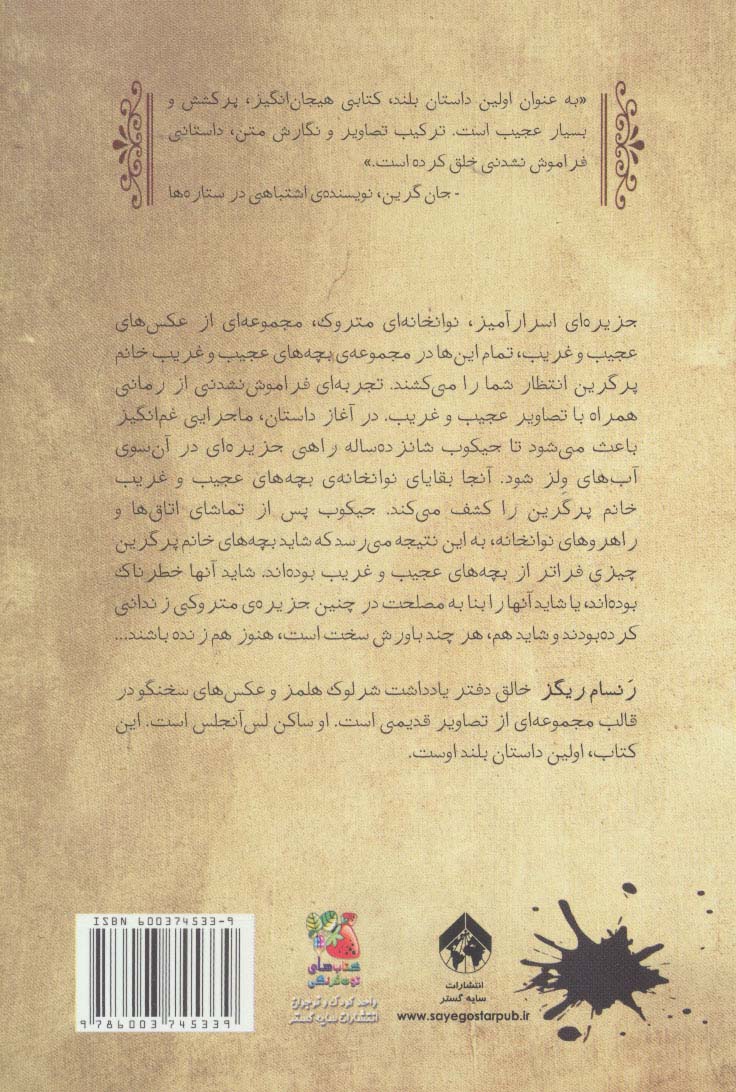 «به عنوان اولین داستان بلند، کتابی هیجان‌انگیز، پرکشش و
بسیار عجیب است. ترکیب تصاویر و نگارش متن، داستانی
فراموش نشدنی خلق کرده است.»
- جان گرین، نویسنده‌ی اشتباهی در ستاره‌ها
جزیره‌ای اسرارآمیز، نوانخانه‌ای متروک، مجموعه‌ای از عکس‌های
عجیب و غریب، تمام این‌ها در مجموعه‌ی بچه‌های عجیب و غریب خانم
پرگرین انتظار شما را می‌کشند. تجربه‌ای فراموش‌نشدنی از رمانی
همراه با تصاویر عجیب و غریب. در آغاز داستان، ماجرایی غم‌انگیز
باعث می‌شود تا جیکوب شانزده‌ساله راهی جزیره‌ای در آن‌سوی
آب‌های وِلز شود. آنجا بقایای نوانخانه‌ی بچه‌های عجیب و غریب
خانم پرگرین را کشف می‌کند. جیکوب پس از تماشای اتاق‌ها و
راهروهای نوانخانه، به این نتیجه می‌رسد که شاید بچه‌های خانم پرگرین
چیزی فراتر از بچه‌های عجیب و غریب بوده‌اند. شاید آنها خطرناک
بوده‌اند، یا شاید آنها را بنا به مصلحت در چنین جزیره‌ی متروکی زندانی
کرده‌بودند و شاید هم، هر چند باورش سخت است، هنوز هم زنده باشند...
رَنسام ریگز خالق دفتر یادداشت شرلوک هلمز و عکس‌های سخنگو در
قالب مجموعه‌ای از تصاویر قدیمی است. او ساکن لس‌آنجلس است. این
کتاب، اولین داستان بلند اوست.
انتشارات
سایه گستر
www.sayegostarpub.ir
کتاب‌های
توت‌فرنگی
واحد کودک و نوجوان
انتشارات سایه گستر
ISBN 600374533-9
9 786003 745339